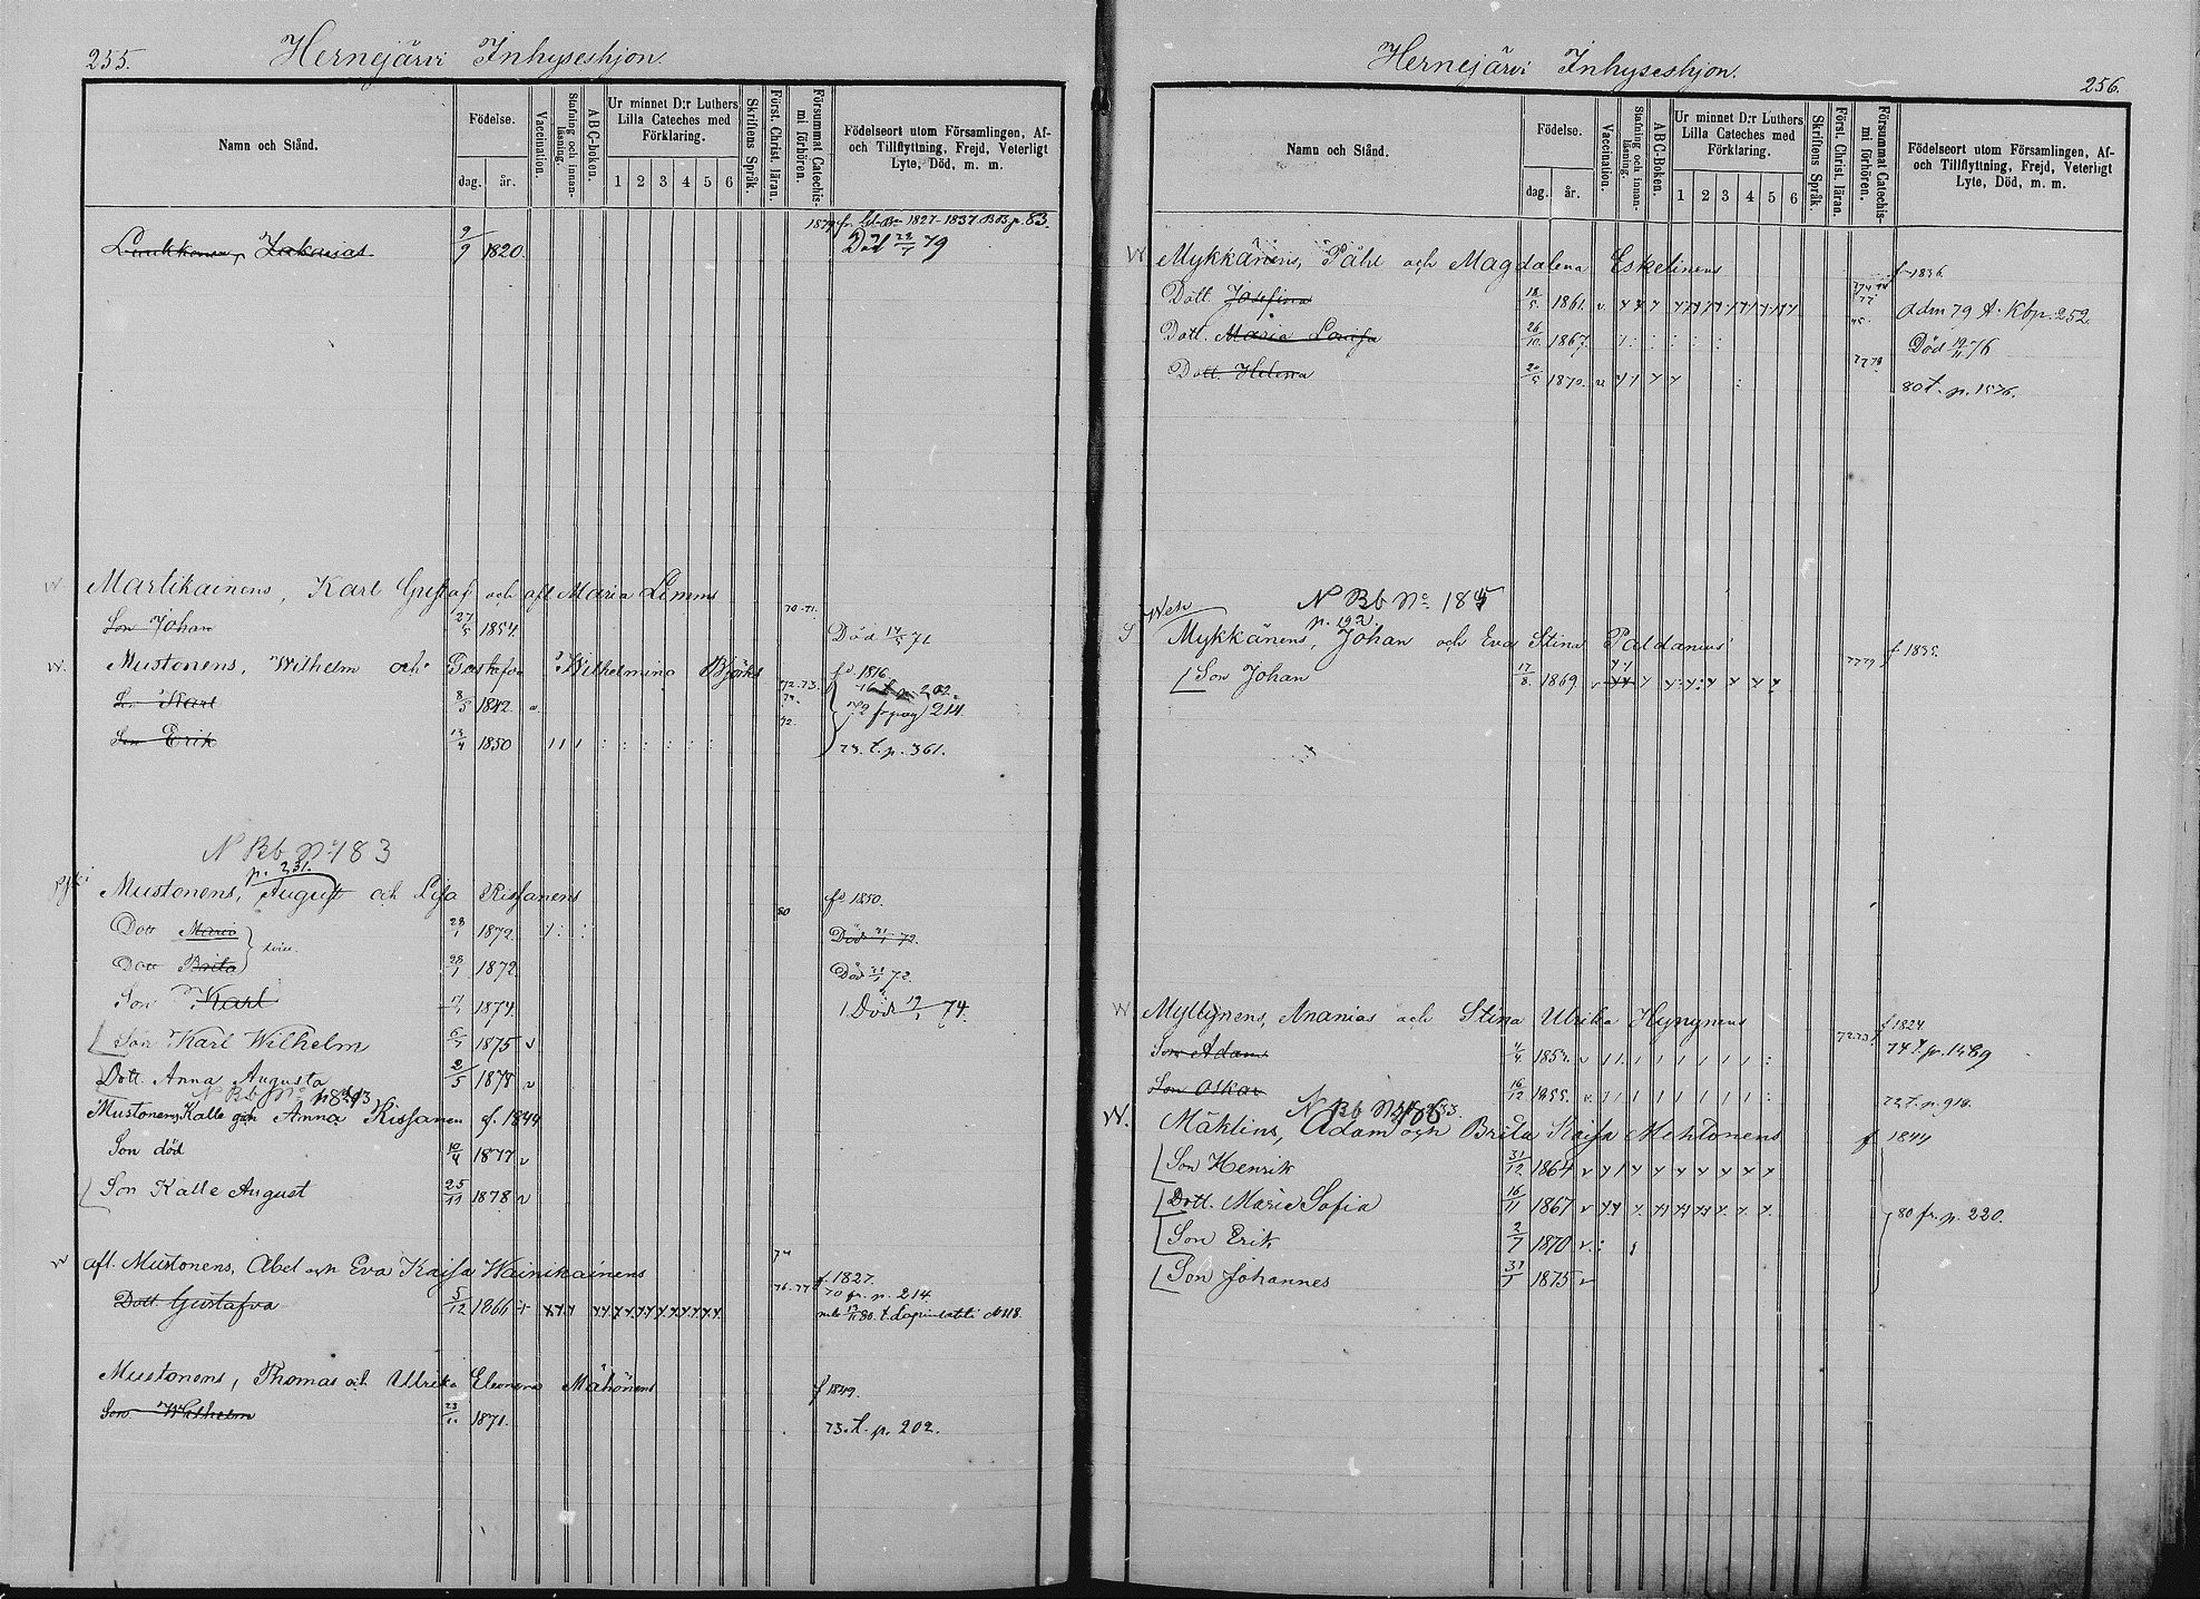 255. Hernejärvi Inhyseshjon.
Namn och Stånd.
Födelse.
dag. år.
Vaccination.
Stafning och innan-läsning.
ABC-boken.
Ur minnet D:r Luthers Lilla Cateches med Förklaring.
1 2 3 4 5 6
Skriftens Språk.
Först. Christ. läran.
Försummat Catechis-mi förhören.
Födelseort utom Församlingen, Af- och Tillflyttning, Frejd, Veterligt Lyte, Död, m. m.
1827-1837. BB p. 83.
Zakarias 9/9 1820. Död 22/7 79
Martikainens, Karl Gustaf och aft Maria Lemms 70-71.
Son Johan 27/5 1854. Död 14/5 71
W. Mustonens, Wilhelm och Gustafva Wilhelmina Björks 72.73. fd 1816
Karl 8/3 1842. 72 fr pag 214
Son Erik 13/4 1850 73. t. p. 361.
N Bb No 183
p. 231.
Mustonens, August och Lisa Rissanens fd 1850.
80
Dott Maria 28/1 1872. Död 31/1 72.
tvill.
Dott Brita 28/1 1872. Död 31/1 72.
Son Karl 17/1 1874. Död 19/1 74.
Son Karl Wilhelm 6/7 1875 v
Dott. Anna Augusta 2/5 1878 v
N Bb No
Mustonens, Kalle och Anna Rissanen f. 1844
Son död 10/4 1877 v
Son Kalle August 25/11 1878 v
W afl. Mustonens, Abel och Eva Kaisa Wainikainens f. 1827.
76.77 70 fr. p. 214
Dott. Gustafva 5/12 1866 t. Lapinlahti N 118.
Mustonens, Thomas och Ulrika Eleonora Mähönens f 1849.
Son Wilhelm 1871. 73. t. p. 202.
Hernejärvi Inhyseshjon. 256.
Namn och Stånd.
Födelse.
dag. år.
Vaccination.
Stafning och innan-läsning.
ABC-Boken.
Ur minnet D:r Luthers Lilla Cateches med Förklaring.
1 2 3 4 5 6
Skriftens Språk.
Först. Christ. läran.
Försummat Catechis-mi förhören.
Födelseort utom Församlingen, Af- och Tillflyttning, Frejd, Veterligt Lyte, Död, m. m.
W Mykkänens, Påhl och Magdalena Eskelinens f 1836
Dott. Josefina 18/5 1861. v Adm 79 t. Kbp. 252.
Dott. Maria Lovisa 26/10 1867. Död 19/11 76
Dott. Helena 20/5 1870. 77 78 80 t. p. 1576.
N Bb No 185
p. 192.
Mykkänens, Johan och Eva Stina Paldanius f 1835.
77 79
Son Johan 17/8 1869
W Myllynens, Ananias och Stina Ulrika Hyvynens f 1824.
72.73. 74 t. p. 1489
Son Adam 4/4 1852. v
Son Oskar 16/12 1855. v 72 t. p. 918.
N Bb No 186
W. Mäklins, Adam och Brita Kaisa Mehtonens f 1844
Son Henrik 31/12 1864 v
Dott. Maria Sofia 16/11 1867 v 80 fr. p. 220.
Son Erik 2/7 1870 v
Son Johannes 31/1 1875 v